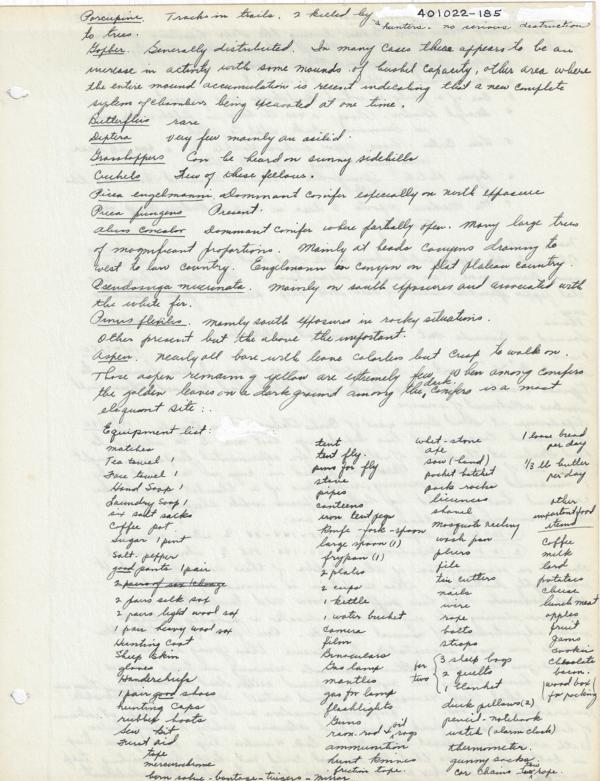 401022-185
Porcupine. Tracks in trails. 2 killed by hunters - no serious destruction
to trees.
Gopher. Generally distributed. In many cases there appears to be an
increase in activity with some mounds of bushel capacity, other area where
the entire mound accumulation is recent indicating that a new complete
system of chambers being excavated at one time.
Butterflies rare
Diptera very few mainly an asilid.
Grasshoppers Can be heard on sunny sidehills
Crickets Few of these fellows.
Picea engelmanni Dominant conifer especially on north exposure
Picea pungens Present.
Abies concolor Dominant conifer where partially open. Many large trees
of magnificent proportions. Mainly at heads canyons draining to
west to low country. Englemann in canyon on flat plateau country.
Pseudosuga mucronata. Mainly on south exposures and associated with
the white fir.
Pinus flexilis. Mainly south exposures in rocky situations.
Other present but the above the important.
Aspen. nearly all bare with leave colorless but crisp to walk on.
Those aspen remaining yellow are extremely few. When among conifers
the golden leaves on a dark ground among the dark conifers is a most
eloquent site:.
Equipment list:
matches
Tea towel 1
Face towel 1
Hand Soap 1
Laundry Soap 1
six salt sacks
Coffee pot.
Sugar 1 pint
Salt. pepper
good pants 1 pair
2 pairs of sox (change
2 pairs silk sox
2 pairs light wool sox
1 pair heavy wool sox
Hunting Coat
Sheep Skin
gloves
Handerchiefs
1 pair good shoes
hunting caps
rubber boots
Sew kit
First Aid
tape
mercurochrome
tent
tent fly.
pins for fly
stove
pipes
canteens
iron tent pegs
knife - fork - spoon
large spoon (1)
frypan (1)
2 plates
2 cups
1 kettle
1 water bucket
camera
film
Binoculars
Gas lamp
mantles
gas for lamp
flashlights
Guns
ram rod & oil rags
ammunition
hunt knives
friction tape.
whet-stone
axe
saw (hand)
pocket hatchet
pack racks
licences
shovel
mosquito netting
wash pan
pliers
file
tin cutters
nails
wire
rope
bolts
straps
for two { 3 sleep bags
2 quilts
1 blanket
duck pillows (2)
pencil - notebook
watch (alarm clock)
thermometer.
gunny sacks
car chains rope.
1 loaf bread
per day
1/3 lb butter
per day
other
important food
items
Coffee
milk
lard
potatoes
cheese
lunch meat
apples
fruit
jams
cookies
chocolate
bacon.
(wood box
for packing